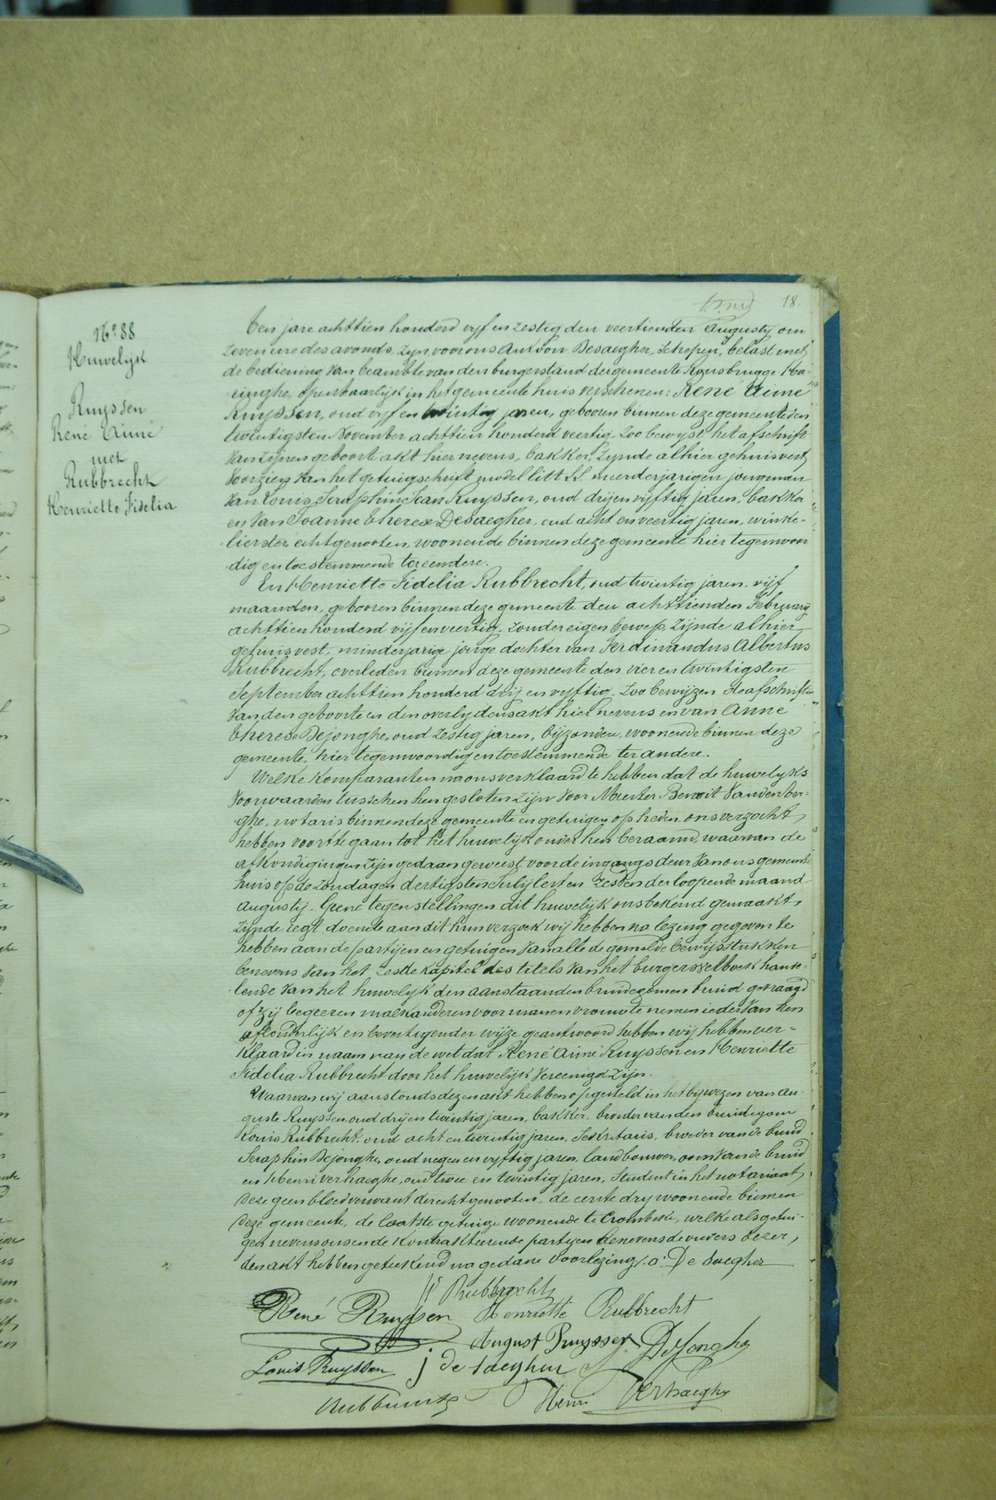 18.
N° 88
Huwelijk
Ruyssen
René Aimé
met
Rubbrecht
Henriette Fidelia
Ten jare achttien honderd vijf en zestig den veertienden Augusty om
zeven ure des avonds, zijn voor ons Antoon Desaegher, Schepen, belast met
de bediening van beambte van den burgerstand der gemeente Rousbrugge Ha-
ringhe, openbaarlijk in het gemeente huis verschenen: René Aimé
Ruyssen, oud vijf en twintig jaren, geboren binnen deze gemeente den
twintigsten November achttien honderd veertig, zoo bewyst het afschrift
van zijnen geboort akt hier nevens, bakker, zijnde alhier gehuisvest,
voorzien van het getuigschrift model litt. meerderjarigen jongman
van Louis Seraphin Jean Ruyssen, oud drij en vijftig jaren, bakker
en van Joanne Therese Desaegher, oud acht en veertig jaren, winke-
lierster, echtgenooten, woonende binnen deze gemeente hier tegenwoor
dig en toestemmende ter eendere.
En Henriette Fidelia Rubbrecht, oud twintig jaren vijf
maanden, geboren binnen deze gemeente den achttienden February
achttien honderd vijf en veertig, zonder eigen bewep, zijnde alhier
gehuisvest, minderjarige jonge dochter van Ferdinandus Albertus
Rubbrecht, overleden binnen deze gemeente den vier en twintigsten
September achttien honderd drij en vyftig, zoo bewijzen de afschriften
van den geboorte en den overlijdensakt hier nevens en van Anne
Therese Dejonghe, oud zestig jaren, bijzondere, woonende binnen deze
gemeente, hier tegenwoordig en toestemmende ter andere.
Welke komparanten na ons verklaard te hebben dat de huwelijks
voorwaarden tusschen hen gesloten zijn voor Meester Benoit Vandenber-
ghe, notaris binnen deze gemeente en getuigen op heden ons verzocht
hebben voort te gaan tot het huwelijk onder hen beraamd, waarvan de
afkondigingen zijn gedaan geweest voor de ingangsdeur van ons gemeente
huis op de zondagen dertigsten July lest en zesten der loopende maand
Augusty. Geene tegenstellingen dit huwelijk ons bekend gemaakt
zijnde regt doende aan dit hun verzoek wij hebben na lezing gegeven te
hebben aan de partijen en getuigen van alle de gemelde bewijsstukken
benevens van het zesde kapitel des titels van het burgerswetboek hande-
lende van het huwelijk den aanstaanden bruidegom en bruid gevraagd
of zij begeeren malkanderen voor man en vrouw te nemen ieder van hen
afzonderlijk en bevestigender wijze geantwoord hebben wij hebben ver-
klaard in naam van de wet dat René Aimé Ruyssen en Henriette
Fidelia Rubbrecht door het huwelijk vereenigd zijn.
Waarvan wij aanstonds dezen akt hebben opgesteld in het bijwezen van Au-
guste Ruyssen oud drij en twintig jaren, bakker, broeder van den bruidegom
Louis Rubbrecht, oud acht en twintig jaren, Sekretaris, broeder van de bruid,
Seraphin Dejonghe, oud negen en vyftig jaren, landbouwer, oom van de bruid
en Henri Verhaeghe, oud twee en twintig jaren, Student in het notariaat,
deze geen bloedverwant der echtgenooten, de eerste drij woonende binnen
deze gemeente, de laatste getuige woonende te Crombeke, welke als getui-
gen nevens ons en de kontrakteerende partijen benevens de ouders dezer,
den akt hebben geteekend na gedane voorlezing. A. De Saegher
Rubbrecht
René Ruyssen Henriette Rubbrecht
August Ruyssen Dejonghe
Louis Ruyssen j de Saegher
Rubbrecht Henri Verhaeghe